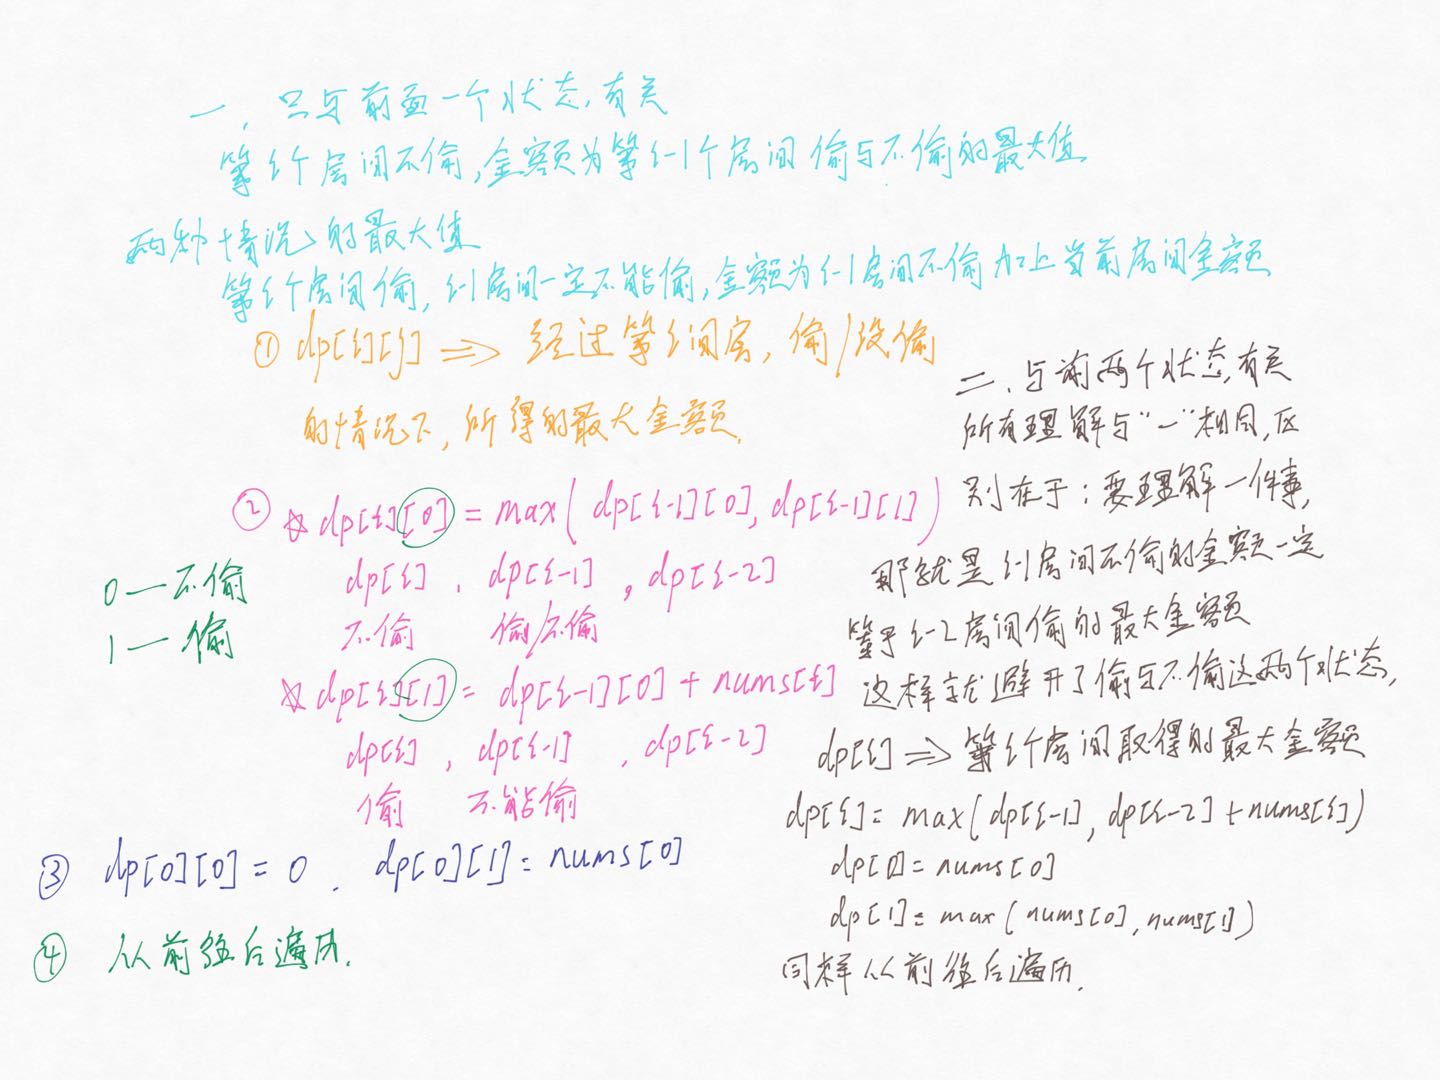 一、只与前面一个状态有关
第i个房间不偷,金额为第i-1个房间偷与不偷的最大值
两种情况的最大值
第i个房间偷,i-1房间一定不能偷,金额为i-1房间不偷加上当前房间金额
① dp[i][j] => 经过第i间房,偷/没偷
的情况下,所得的最大金额.
② ☆ dp[i][0] = max( dp[i-1][0], dp[i-1][1] )
0 — 不偷
1 — 偷
dp[i] , dp[i-1] , dp[i-2]
不偷 偷/不偷
☆ dp[i][1] = dp[i-1][0] + nums[i]
dp[i] , dp[i-1] , dp[i-2]
偷 不能偷
③ dp[0][0] = 0 . dp[0][1] = nums[0]
④ 从前往后遍历.
二、与前两个状态有关
所有理解与“一”相同,区
别在于:要理解一件事,
那就是i-1房间不偷的金额一定
等于i-2房间偷的最大金额
这样就避开了偷与不偷这两个状态,
dp[i] => 第i个房间取得的最大金额
dp[i] = max( dp[i-1] , dp[i-2] + nums[i] )
dp[0] = nums[0]
dp[1] = max ( nums[0] , nums[1] )
同样从前往后遍历.